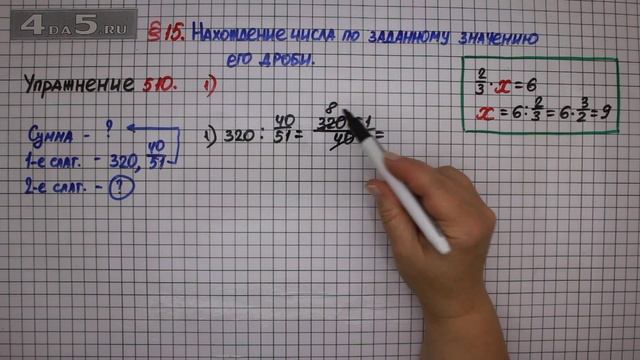 4DA5.RU
§ 15. Нахождение числа по заданному значению
его дроби.
Упражнение 510. 1)
2/3 · x = 6
x = 6 : 2/3 = 6 · 3/2 = 9
Сумма - ?
1-е слаг. - 320, 40/51
2-е слаг. - ?
8
1) 320 : 40/51 = 320 · 51/40 =